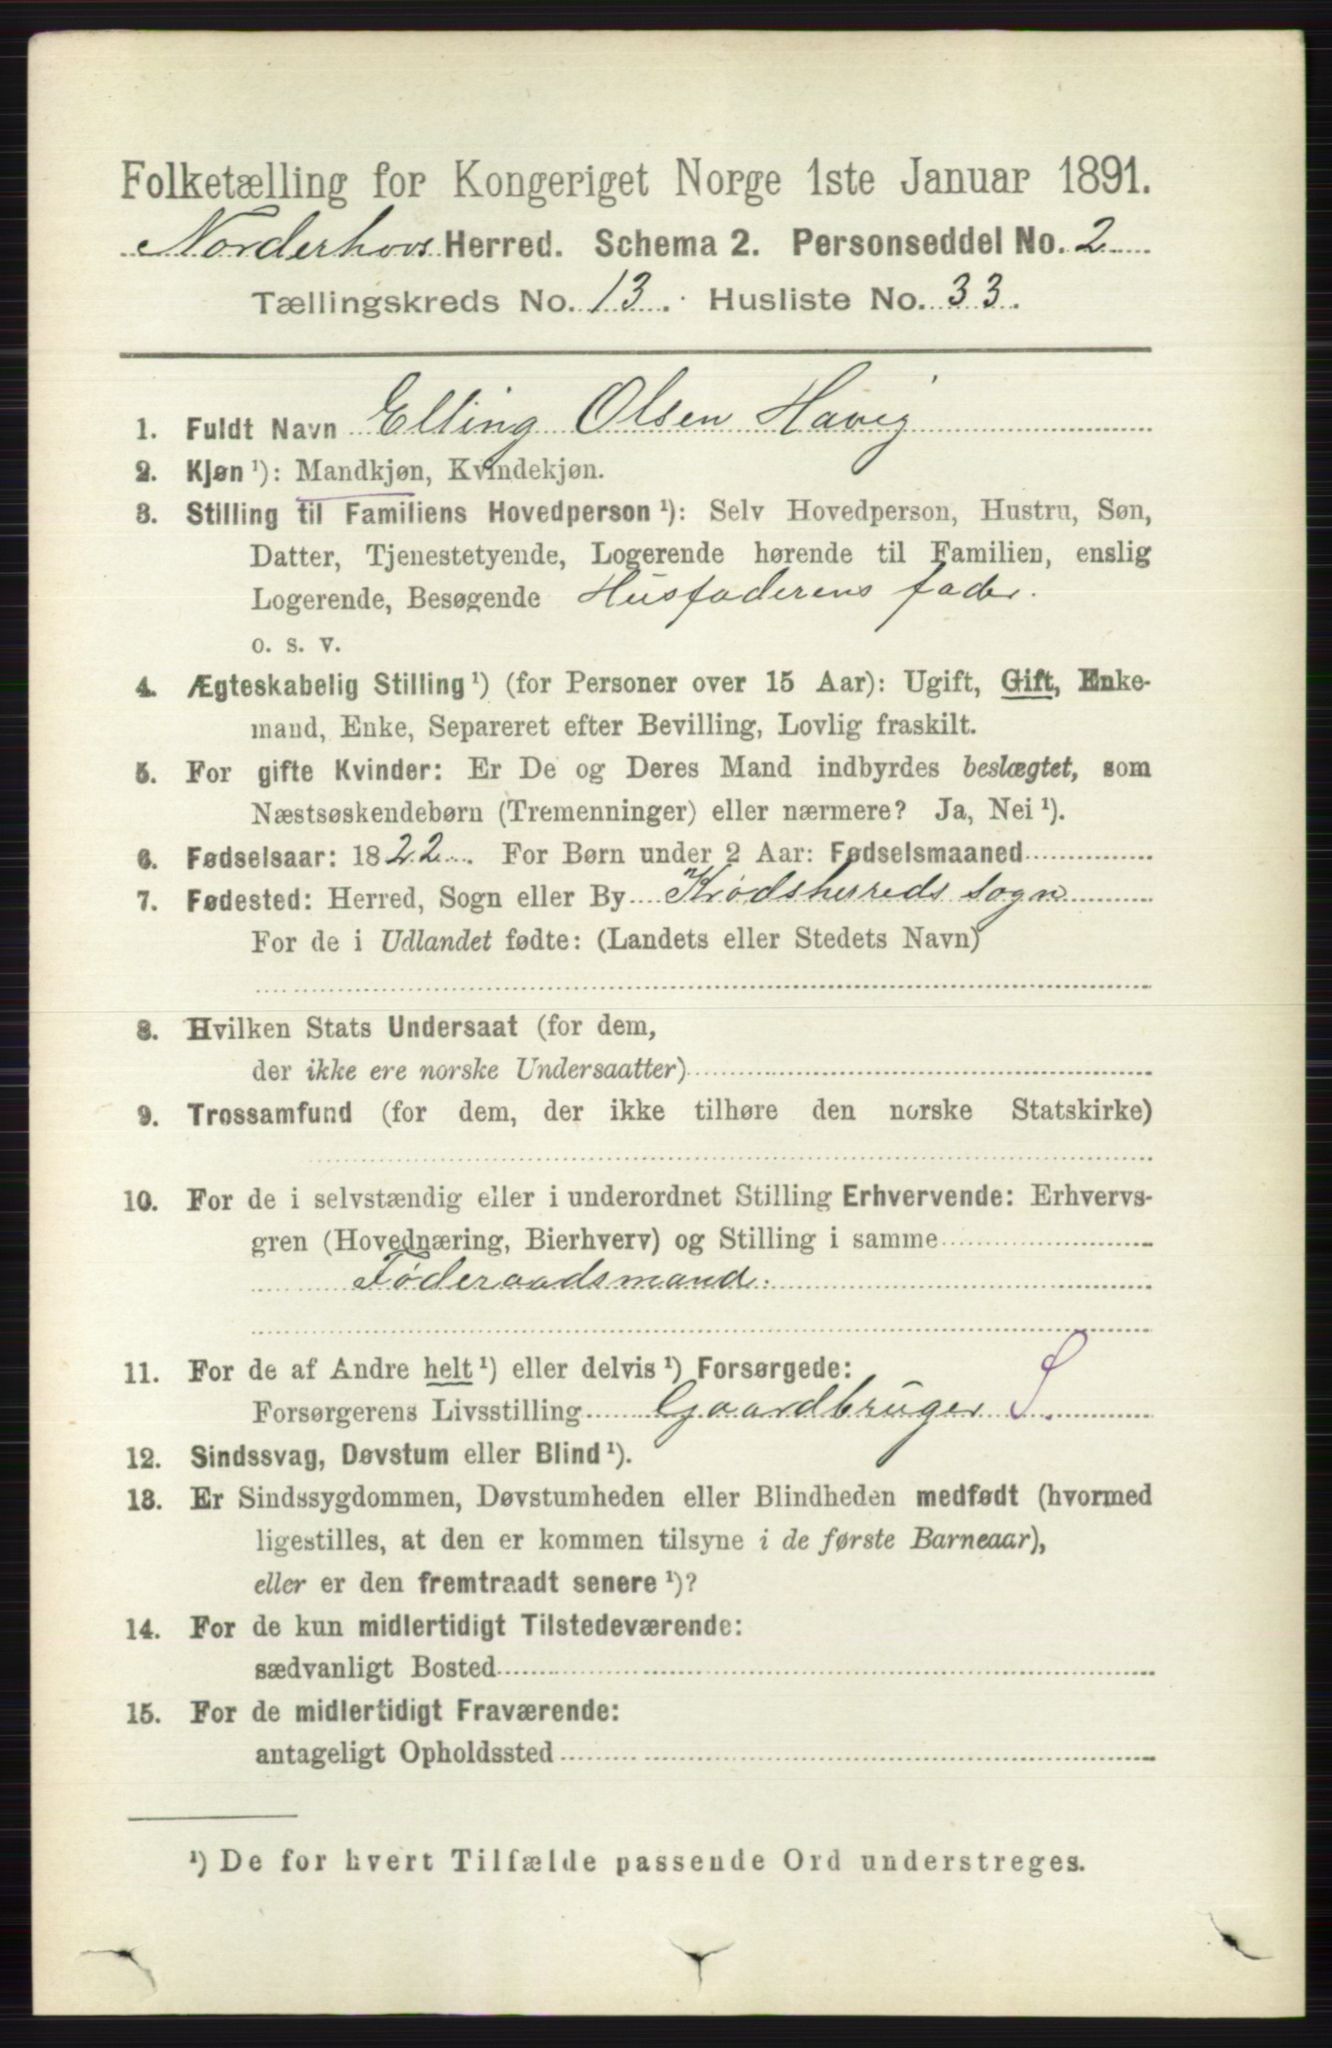 Folketælling for Kongeriget Norge 1ste Januar 1891.
Norderhovs Herred. Schema 2. Personseddel No. 2
Tællingskreds No. 13. Husliste No. 33.
1. Fuldt Navn Elling Olsen Havig
2. Kjøn ¹): Mandkjøn, Kvindekjøn.
3. Stilling til Familiens Hovedperson ¹): Selv Hovedperson, Hustru, Søn,
Datter, Tjenestetyende, Logerende hørende til Familien, enslig
Logerende, Besøgende Husfaderens fader.
o. s. v.
4. Ægteskabelig Stilling ¹) (for Personer over 15 Aar): Ugift, Gift, Enke-
mand, Enke, Separeret efter Bevilling, Lovlig fraskilt.
5. For gifte Kvinder: Er De og Deres Mand indbyrdes beslægtet, som
Næstsøskendebørn (Tremenninger) eller nærmere? Ja, Nei ¹).
6. Fødselsaar: 1822. For Børn under 2 Aar: Fødselsmaaned
7. Fødested: Herred, Sogn eller By Krødsherreds sogn
For de i Udlandet fødte: (Landets eller Stedets Navn)
8. Hvilken Stats Undersaat (for dem,
der ikke ere norske Undersaatter)
9. Trossamfund (for dem, der ikke tilhøre den norske Statskirke)
10. For de i selvstændig eller i underordnet Stilling Erhvervende: Erhvervs-
gren (Hovednæring, Bierhverv) og Stilling i samme
Føderaadsmand.
11. For de af Andre helt ¹) eller delvis ¹) Forsørgede:
Forsørgerens Livsstilling Gaardbruger S.
12. Sindssvag, Døvstum eller Blind ¹).
13. Er Sindssygdommen, Døvstumheden eller Blindheden medfødt (hvormed
ligestilles, at den er kommen tilsyne i de første Barneaar),
eller er den fremtraadt senere ¹)?
14. For de kun midlertidigt Tilstedeværende:
sædvanligt Bosted
15. For de midlertidigt Fraværende:
antageligt Opholdssted
¹) De for hvert Tilfælde passende Ord understreges.